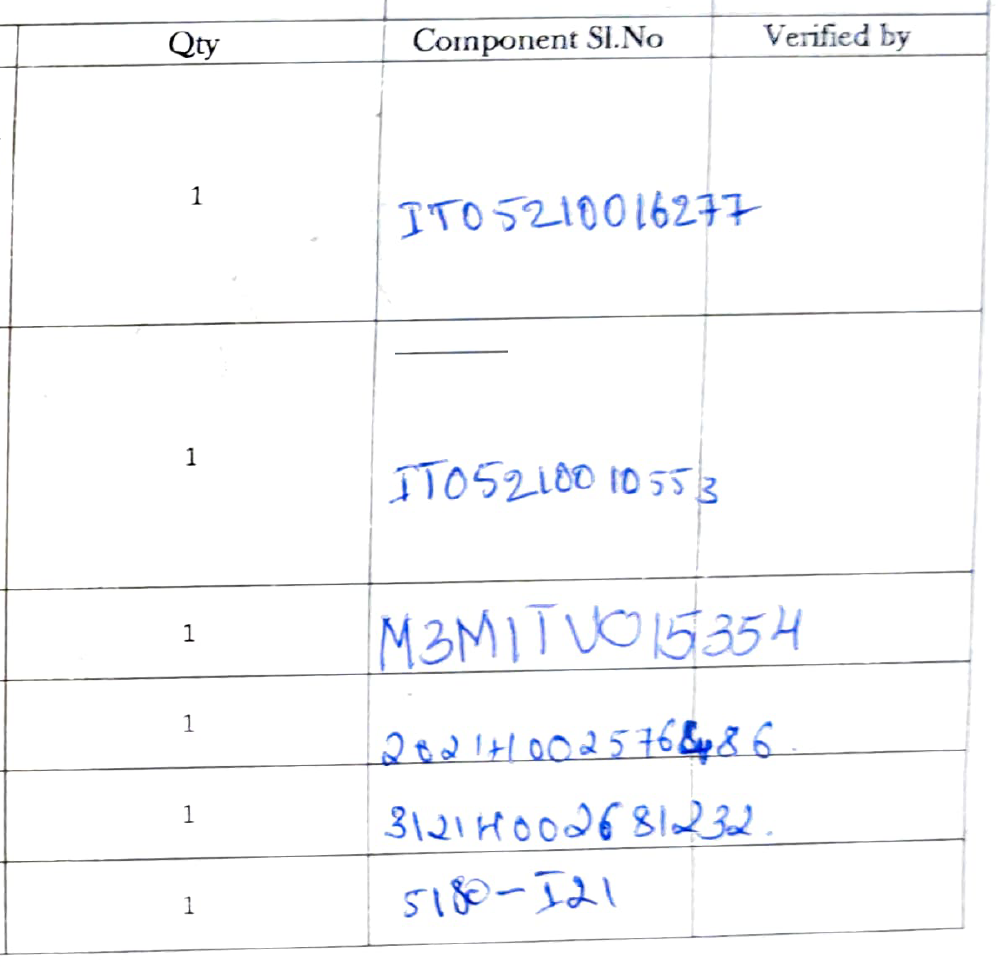 Qty Component Sl.No Verified by
1 ITO5210016277
1 ITO5210010553
1 M3M1TVO15354
1
1 3121H002681232.
1 5180-I21